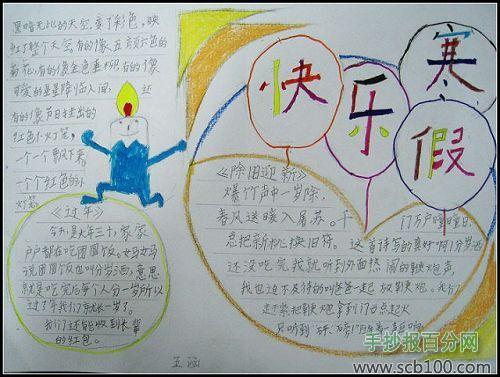 黑暗无比的天空变了彩色，映
红了整个天空有的像五颜六色的
菊花，有的像金色垂柳有的像
可爱的星星降临人间，还
有的像节日挂出的
红色小灯笼，
一个一个飘下来
一个个红色的小
灯笼
快乐寒假
《过年》
今天是大年三十，家家
户户都在吃团圆饭。妈妈
说团圆饭也叫分岁酒，意思
就是吃完后每个人分一岁所以
过了年我们就长一岁了。
我们还能收到长辈
的红包。
《除旧迎新》
爆竹声中一岁除，
春风送暖入屠苏。千
门万户曈曈日，
总把新桃换旧符。这首诗写的真好啊！分岁酒
还没吃完我就听到外面热闹的鞭炮声，
我也迫不及待的叫爸爸一起放鞭炮。我们
赶紧把鞭炮拿到门口点起火
只听到
王涵
手抄报百分网
www.scb100.com